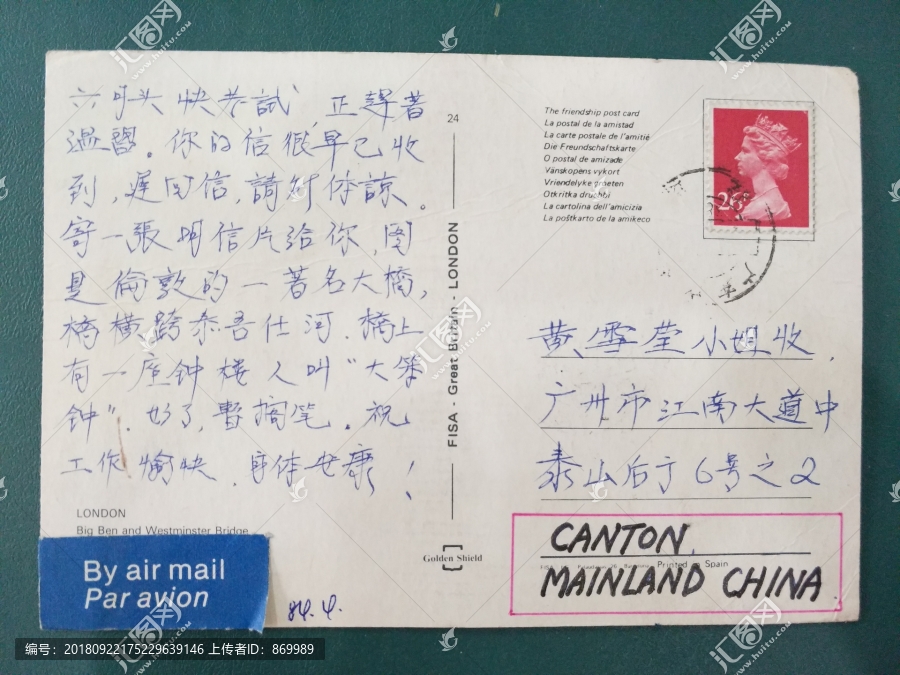 六号头快考试,正趕着
溫習。你的信很早已收
到,遲回信,請你体諒。
寄一張明信片給你,图
是倫敦的一著名大橋,
橋橫跨泰吾仕河.橋上
有一座钟楼人叫“大笨
钟”.好了,暫搁笔.祝
工作愉快.身体安康!
LONDON
Big Ben and Westminster Bridge
By air mail
Par avion
84.4.
24
FISA - Great Britain - LONDON
Golden Shield
The friendship post card
La postal de la amistad
La carte postale de l'amitié
Die Freundschaftskarte
O postal de amizade
Vänskapens vykort
Vriendelyke groeten
Otkritka druchbi
La cartolina dell'amicizia
La poŝtkarto de la amikeco
26
黄雪莹小姐收
广州市江南大道中
泰山后于6号之2
CANTON,
Printed in Spain
MAINLAND CHINA
编号:20180922175229639146 上传者ID:869989
汇图网
www.huitu.com